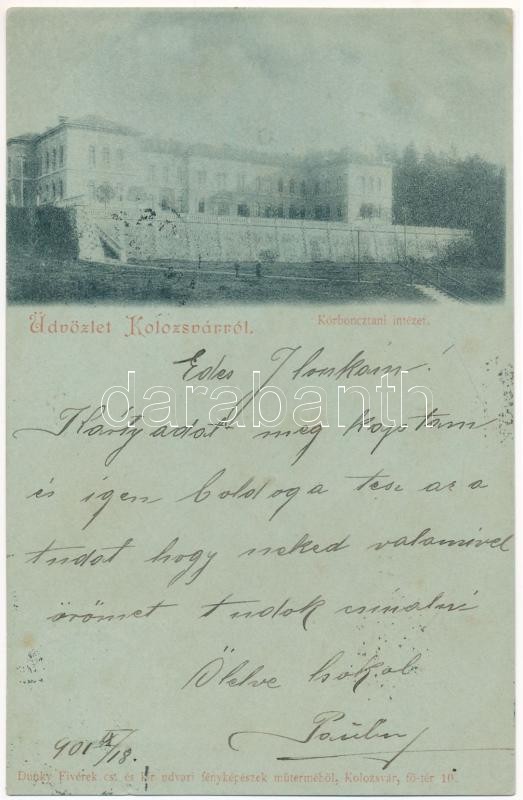 Üdvözlet Kolozsvárról.
Kórboncztani intézet.
Edes Ilonkám!
Kártyadat meg kaptam
és igen boldoga tesz az a
tudat hogy neked valamivel
örömet tudok csinálni
Ölelve csokol
901 IX/18.
Dunky Fivérek cs. és kir. udvari fényképészek műterméből, Kolozsvár, fő-tér 10.
darabanth